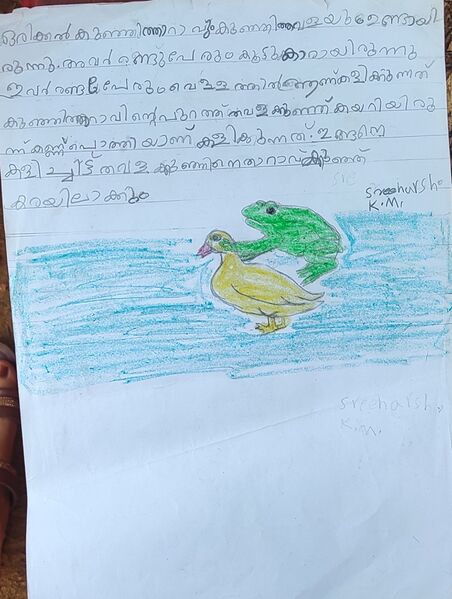 ഒരിക്കൽ കുഞ്ഞിത്താറാവും കുഞ്ഞിത്തവളയും ഉണ്ടായി
രുന്നു. അവർ രണ്ടുപേരും കൂട്ടുകാരായിരുന്നു
ഇവർ രണ്ടുപേരും വെള്ളത്തിൽ ആണ് കളിക്കുന്നത്
കുഞ്ഞിത്താറാവിന്റെ പുറത്ത് തവളക്കുഞ്ഞ് കയറിയിരു
ന്ന് കണ്ണ് പൊത്തിയാണ് കളിക്കുന്നത്. ഇങ്ങനെ
കളിച്ചിട്ട് തവളക്കുഞ്ഞിനെ താറാവ്കുഞ്ഞ്
കരയിലാക്കും
sreeharsh.
K.M.
sreeharsh.
K.M.